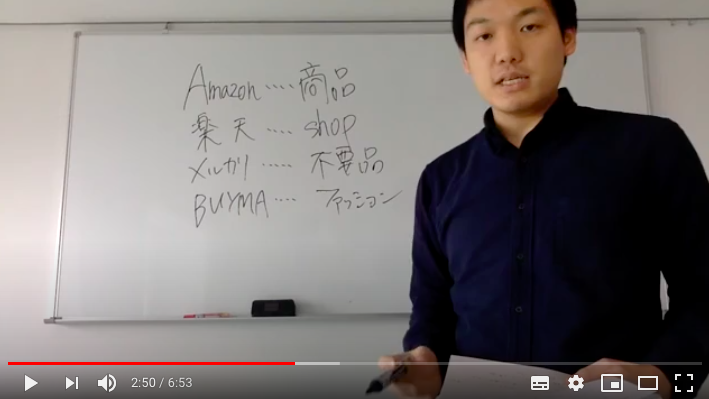 Amazon ‥‥ 商品
楽天 ‥‥ shop
メルカリ ‥‥‥ 不要品
BUYMA ‥‥ ファッション
2:50 / 6:53